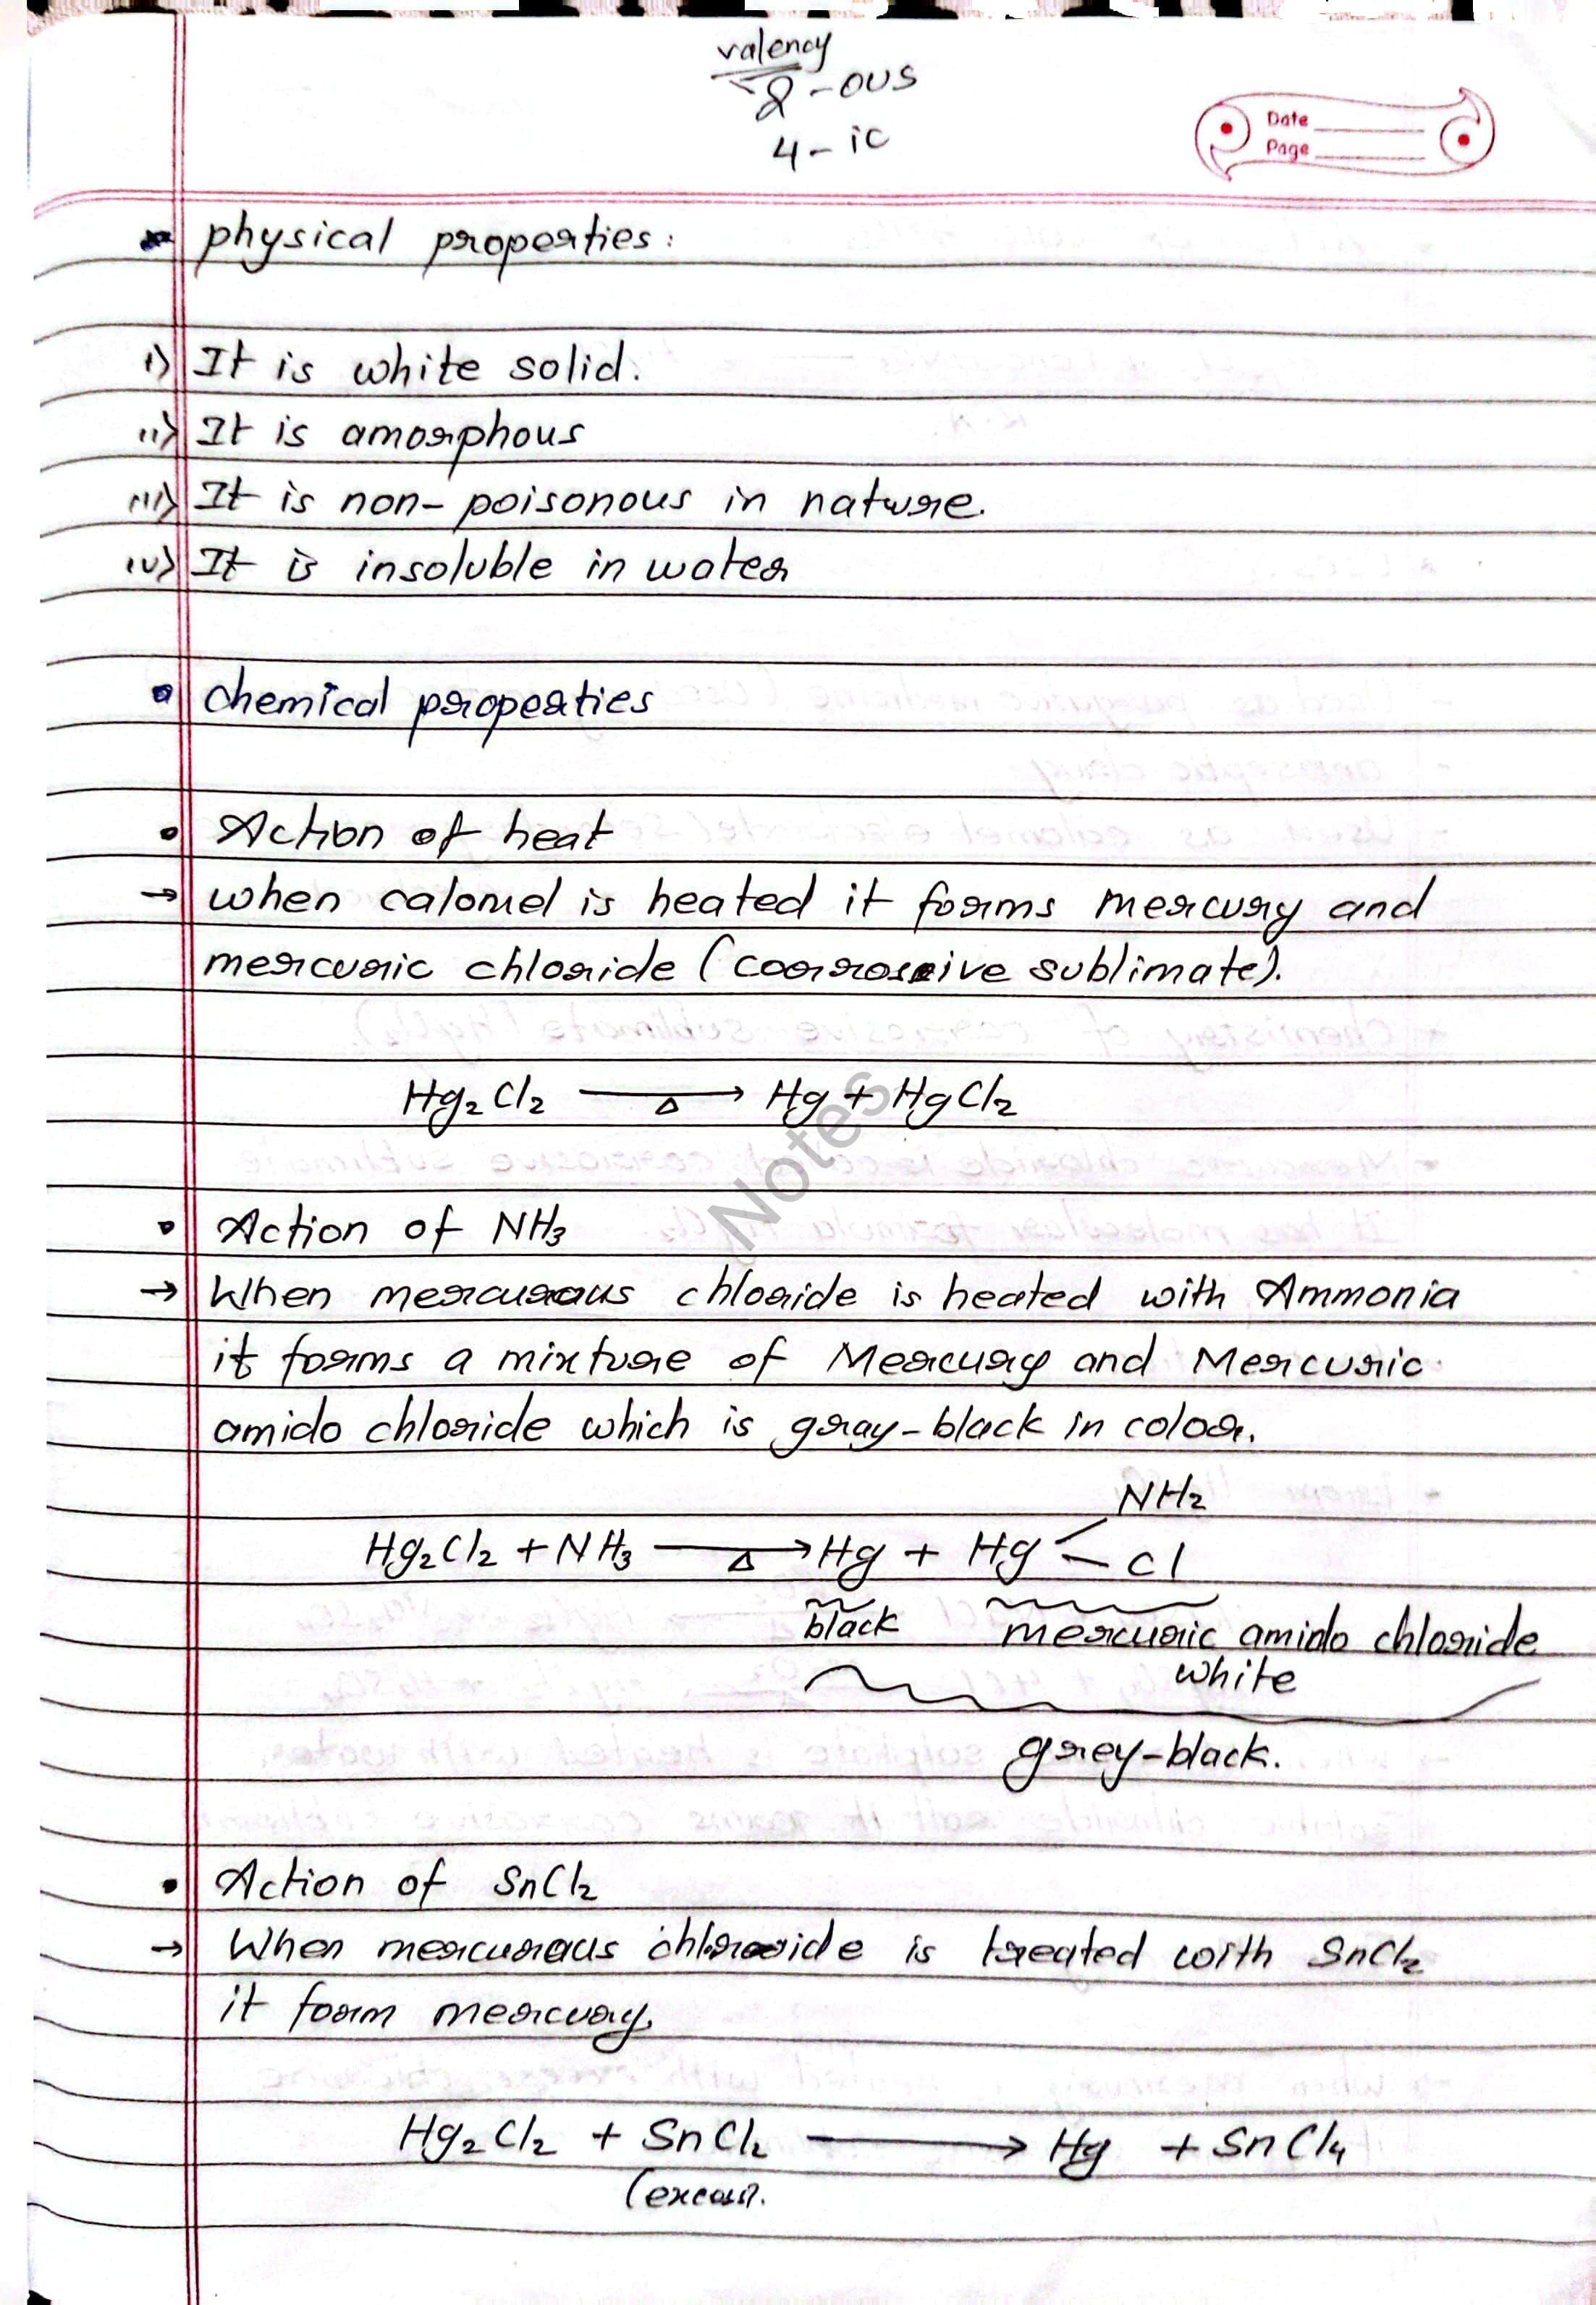 valency
2 - ous
4 - ic
Date
Page
physical properties:
i) It is white solid.
ii) It is amorphous
iii) It is non-poisonous in nature.
iv) It is insoluble in water
chemical properties
Action of heat
→ when calomel is heated it forms mercury and
mercuric chloride (corrosive sublimate).
Hg₂Cl₂ ⟶ Δ Hg + HgCl₂
Notes
Action of NH₃
→ When mercurous chloride is heated with Ammonia
it forms a mixture of Mercury and Mercuric
amido chloride which is gray-black in color.
NH₂
Hg₂Cl₂ + NH₃ ⟶ Δ Hg + Hg Cl
black mercuric amido chloride
white
grey-black.
Action of SnCl₂
→ When mercurous chloride is treated with SnCl₂
it form mercury.
Hg₂Cl₂ + SnCl₂ ⟶ Hg + SnCl₄